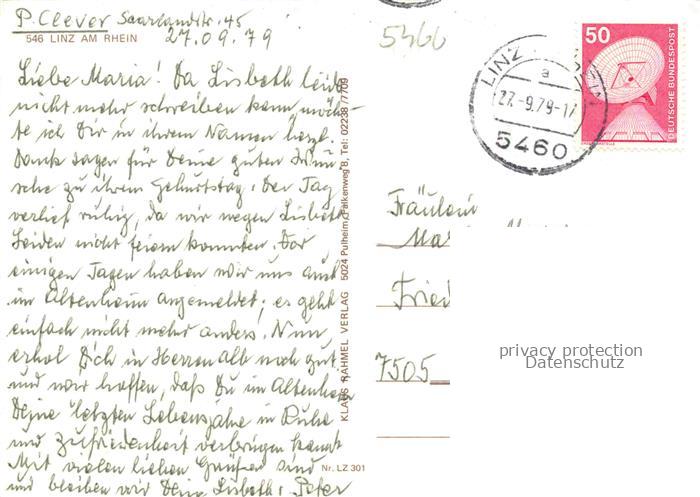 P. Clever Saarlandstr. 45
546 LINZ AM RHEIN 27.09.79
Liebe Maria! Da Lisbeth leider
nicht mehr schreiben kann, möch-
te ich Dir in ihrem Namen herzl.
Dank sagen für Deine guten Wün-
sche zu ihrem Geburtstag. Der Tag
verlief ruhig, da wir wegen Lisbeth
Leiden nicht feiern konnten. Vor
einigen Tagen haben wir uns auch
im Altenheim angemeldet; es geht
einfach nicht mehr anders. Nun
erhol Dich in Herrenalb noch gut
und wir hoffen, daß Du im Altenheim
Deine letzten Lebensjahre in Ruhe
und Zufriedenheit verbringen kannst
Mit vielen lieben Grüßen sind
und bleiben wir Deine Lisbeth u. Peter
KLAUS RAHMEL VERLAG 5024 Pulheim, Falkenweg 8, Tel: 02238/7709
Nr. LZ 301
5466
LINZ
a
27.-9.79-17
5460
50
DEUTSCHE BUNDESPOST
Fräulein
Ma
Fried
7505
privacy protection
Datenschutz